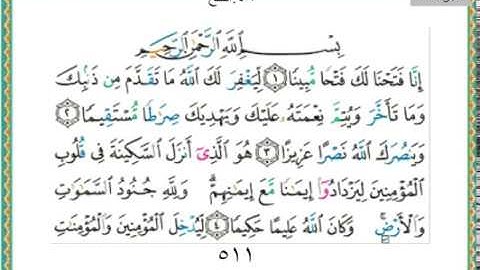 بِسْمِ اللَّهِ الرَّحْمَٰنِ الرَّحِيمِ
إِنَّا فَتَحْنَا لَكَ فَتْحًا مُّبِينًا ﴿١﴾ لِّيَغْفِرَ لَكَ اللَّهُ مَا تَقَدَّمَ مِن ذَنۢبِكَ
وَمَا تَأَخَّرَ وَيُتِمَّ نِعْمَتَهُۥ عَلَيْكَ وَيَهْدِيَكَ صِرَٰطًا مُّسْتَقِيمًا ﴿٢﴾
وَيَنصُرَكَ اللَّهُ نَصْرًا عَزِيزًا ﴿٣﴾ هُوَ الَّذِىٓ أَنزَلَ السَّكِينَةَ فِى قُلُوبِ
الْمُؤْمِنِينَ لِيَزْدَادُوٓا۟ إِيمَٰنًا مَّعَ إِيمَٰنِهِمْ ۗ وَلِلَّهِ جُنُودُ السَّمَٰوَٰتِ
وَالْأَرْضِ ۚ وَكَانَ اللَّهُ عَلِيمًا حَكِيمًا ﴿٤﴾ لِّيُدْخِلَ الْمُؤْمِنِينَ وَالْمُؤْمِنَٰتِ
٥١١